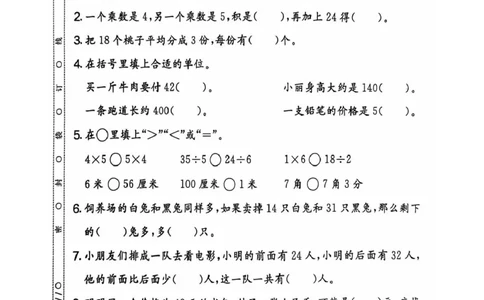 2. 一个乘数是 4,另一个乘数是 5,积是(  ),再加上 24 得(  )。
3. 把 18 个桃子平均分成 3 份,每份有(  )个。
4. 在括号里填上合适的单位。
买一斤牛肉要付 42(  )。 小丽身高大约是 140(  )。
一条跑道长约 400(  )。 一支铅笔的价格是 5(  )。
5. 在○里填上“>”“<”或“=”。
4×5○5×4 35÷5○24÷6 1×6○18÷2
6 米○56 厘米 100 厘米○1 米 7 角○7 角 3 分
6. 饲养场的白兔和黑兔同样多,如果卖掉 14 只白兔和 31 只黑兔,那么剩下
的(  )兔多,多(  )只。
7. 小朋友们排成一队去看电影,小明的前面有 24 人,小明的后面有 32 人,
他的前面比后面少(  )人,这一队一共有(  )人。
线
订
装
封
密